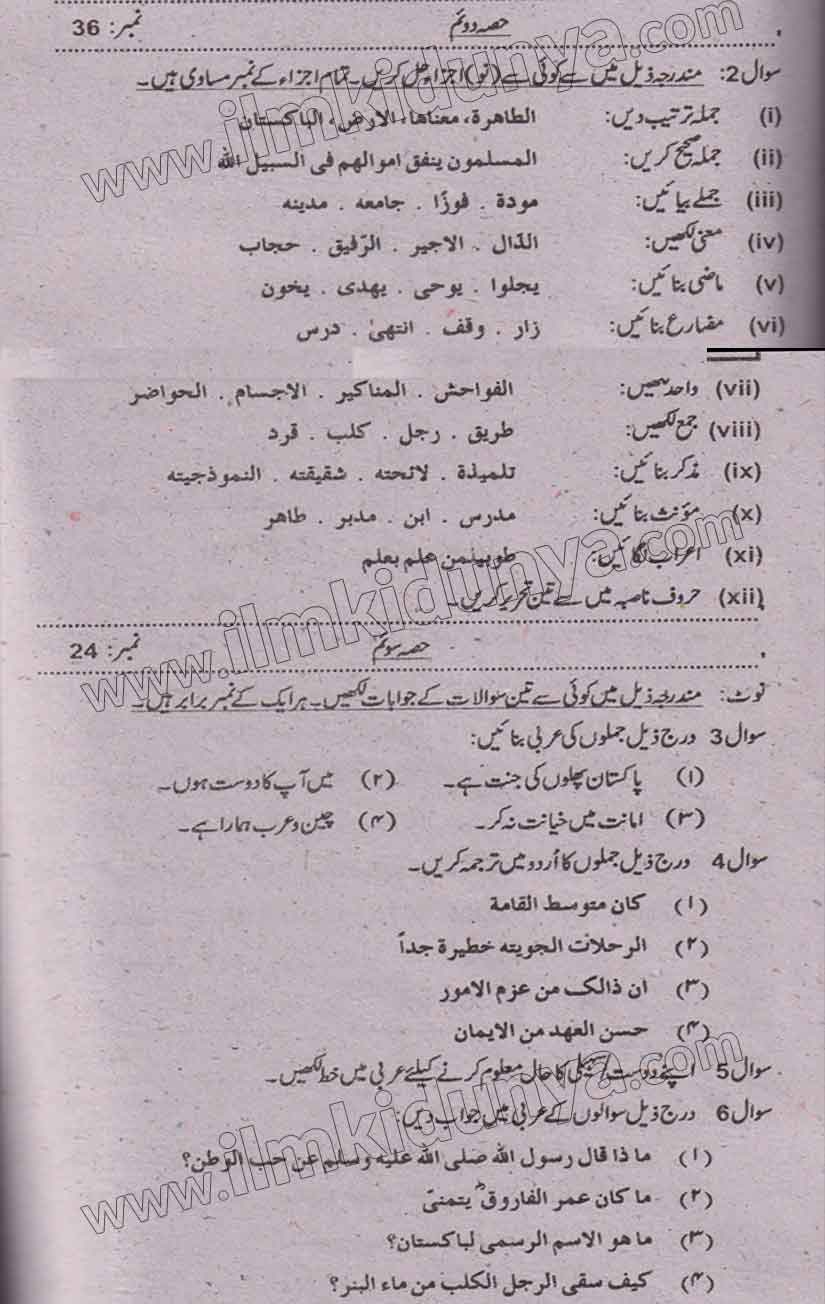 حصہ دوئم نمبر: 36
سوال 2: مندرجہ ذیل میں سے کوئی سے (نو) اجزاء حل کریں۔ تمام اجزاء کے نمبر مساوی ہیں۔
(i) جملہ ترتیب دیں: الطاهرة، معناها، الارض، الباكستان
(ii) جملہ صحیح کریں: المسلمون ينفق اموالهم فى السبيل الله
(iii) جملے بنائیں: مودة . فوزًا . جامعه . مدينه
(iv) معنی لکھیں: الدّال . الاجير . الرّفيق . حجاب
(v) ماضی بنائیں: يجلوا . يوحى . يهدى . يخون
(vi) مضارع بنائیں: زار . وقف . انتهىٰ . درس
(vii) واحد لکھیں: الفواحش . المناكير . الاجسام . الحواضر
(viii) جمع لکھیں: طريق . رجل . كلب . قرد
(ix) مذکر بنائیں: تلميذة . لائحته . شقيقته . النموذجيته
(x) مؤنث بنائیں: مدرس . ابن . مدبر . طاهر
(xi) اعراب لگائیں: طوبيلمن علم بعلم
(xii) حروف ناصبہ میں سے تین تحریر کریں۔
حصہ سوئم نمبر: 24
نوٹ: مندرجہ ذیل میں کوئی سے تین سوالات کے جوابات لکھیں۔ ہر ایک کے نمبر برابر ہیں۔
سوال 3 درج ذیل جملوں کی عربی بنائیں:
(۱) پاکستان پھلوں کی جنت ہے۔ (۲) میں آپ کا دوست ہوں۔
(۳) امانت میں خیانت نہ کر۔ (۴) چین و عرب ہمارا ہے۔
سوال 4 درج ذیل جملوں کا اُردو میں ترجمہ کریں۔
(۱) كان متوسط القامة
(۲) الرحلات الجويته خطيرة جداً
(۳) ان ذالک من عزم الامور
(۴) حسن العهد من الايمان
سوال 5 اپنے دوست/سہیلی کا حال معلوم کرنے کیلئے عربی میں خط لکھیں۔
سوال 6 درج ذیل سوالوں کے عربی میں جواب دیں:
(۱) ما ذا قال رسول الله صلى الله عليه وسلم عن حب الوطن؟
(۲) ما كان عمر الفاروقؓ يتمنىّ
(۳) ما هو الاسم الرسمى لباكستان؟
(۴) كيف سقى الرجل الكلب من ماء البئر؟
www.ilmkidunya.com
www.ilmkidunya.com
www.ilmkidunya.com